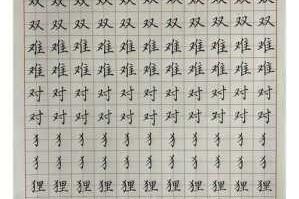 双双双双双双双双双双双
双双双双双双双双双双双
难难难难难难难难难难难
难难难难难难难难难难难
对对对对对对对对对对对
对对对对对对对对对对对
犭犭犭犭犭犭犭犭犭犭犭
犭犭犭犭犭犭犭犭犭犭犭
狸狸狸狸狸狸狸狸狸狸狸